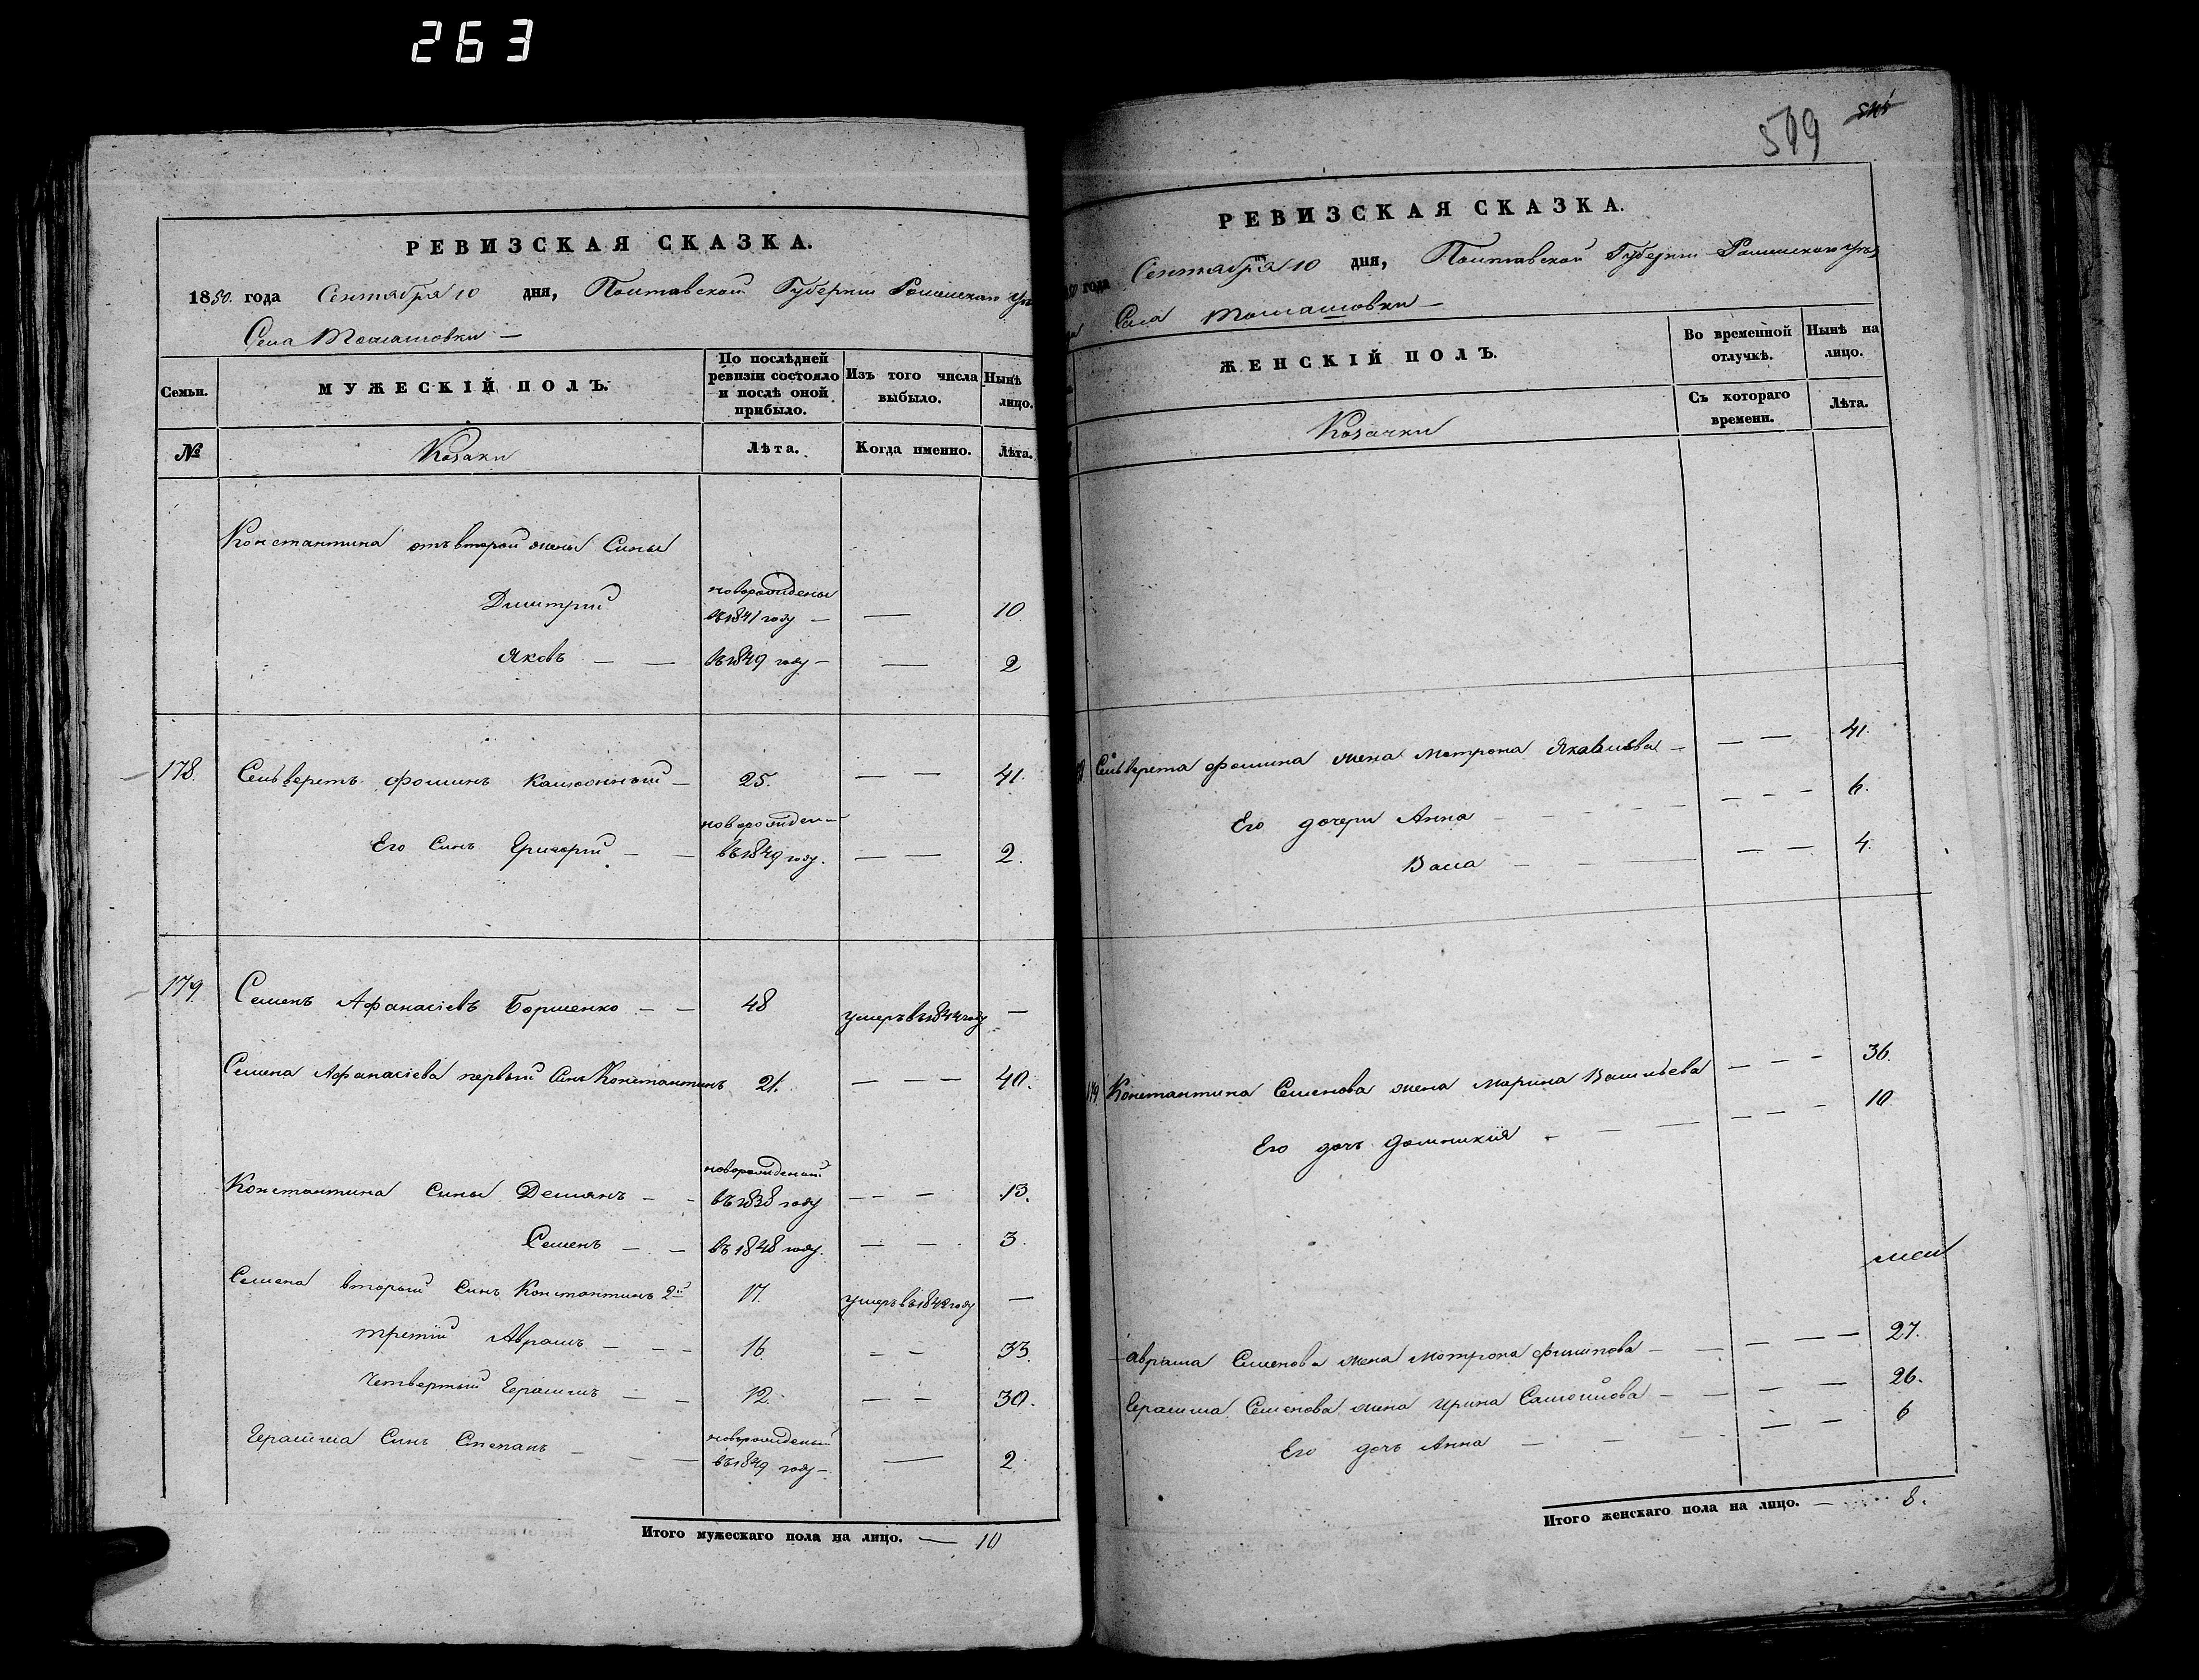 263
РЕВИЗСКАЯ СКАЗКА.
1850. года Сентября 10 дня, Полтавской Губернии Роменскаго Уѣ
Села Томашовки —
Семьи.
МУЖЕСКІЙ ПОЛЪ.
По послѣдней ревизіи состояло и послѣ оной прибыло.
Изъ того числа выбыло.
Нынѣ лицо.
№
Козаки
Лѣта.
Когда именно.
Лѣта.
Константина отъ второй жены Сины
Димитрий новорождены въ 1841 году — — 10
Яковъ — — въ 1849 году — — 2
178. Фоминъ — 25. — — 41.
Его Синъ Григорий — — новорожден въ 1849 году. — — 2.
179. Семенъ Афанасіевъ Борменко — — 48 умеръ въ 1844 году —
Семена Афанасіева первый Синъ Константинъ 21. — — — 40.
Константина Сины Демянъ — — новорожденый въ 1838 году — — — 13.
Семенъ — — въ 1848 году. — — 3.
Семена второй Синъ Константинъ 2й 17. умеръ въ 1842 году —
третій Аврамъ — — — 16. — — 33.
Четвертый Герасимъ — — 12. — — 30.
Герасима Синъ Степанъ — — — новорожденый въ 1849 году — — 2.
Итого мужескаго пола на лицо. — 10
519
РЕВИЗСКАЯ СКАЗКА.
года Сентября 10 дня, Полтавской Губернии Роменскаго Уѣз
Села Томашовки —
ЖЕНСКІЙ ПОЛЪ.
Во временной отлучкѣ.
Нынѣ на лицо.
Козачки
Съ котораго времени.
Лѣта.
Фомина жена Мотрона Яковлева — — — 41.
Его дочери Анна — — — — — — 6.
Васа — — — — — 4.
179 Константина Семенова жена Марина Васильева — — — 36.
Его дочь Домникія — — — — — — 10.
Аврама Семенова жена Мотрона Филипова — — — — — 27.
Герасима Семенова жена Ирина Самойлова — — — — 26.
Его дочь Анна — — — — — 6
Итого женскаго пола на лицо. — 8.